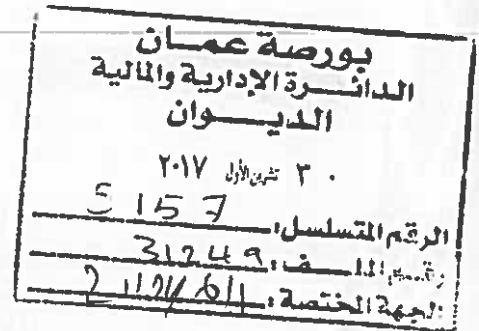 بورصة عمان
الدائرة الإدارية والمالية
الديوان
٣٠ تشرين الأول ٢٠١٧
الرقم المتسلسل: 5157
رقم الملف: 31249
الجهة المختصة: